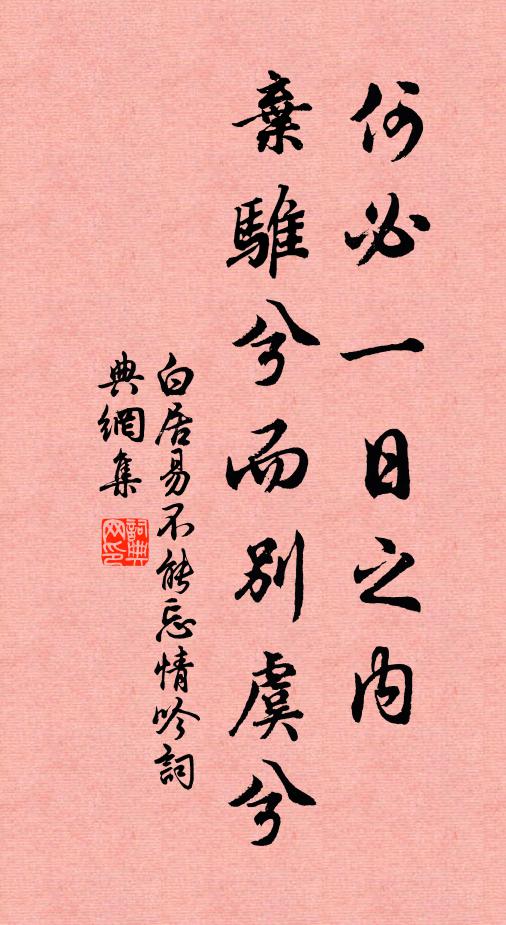 何必一日之內
棄騅兮而別虞兮
白居易不能忘情吟詞
典網集
詞典網印